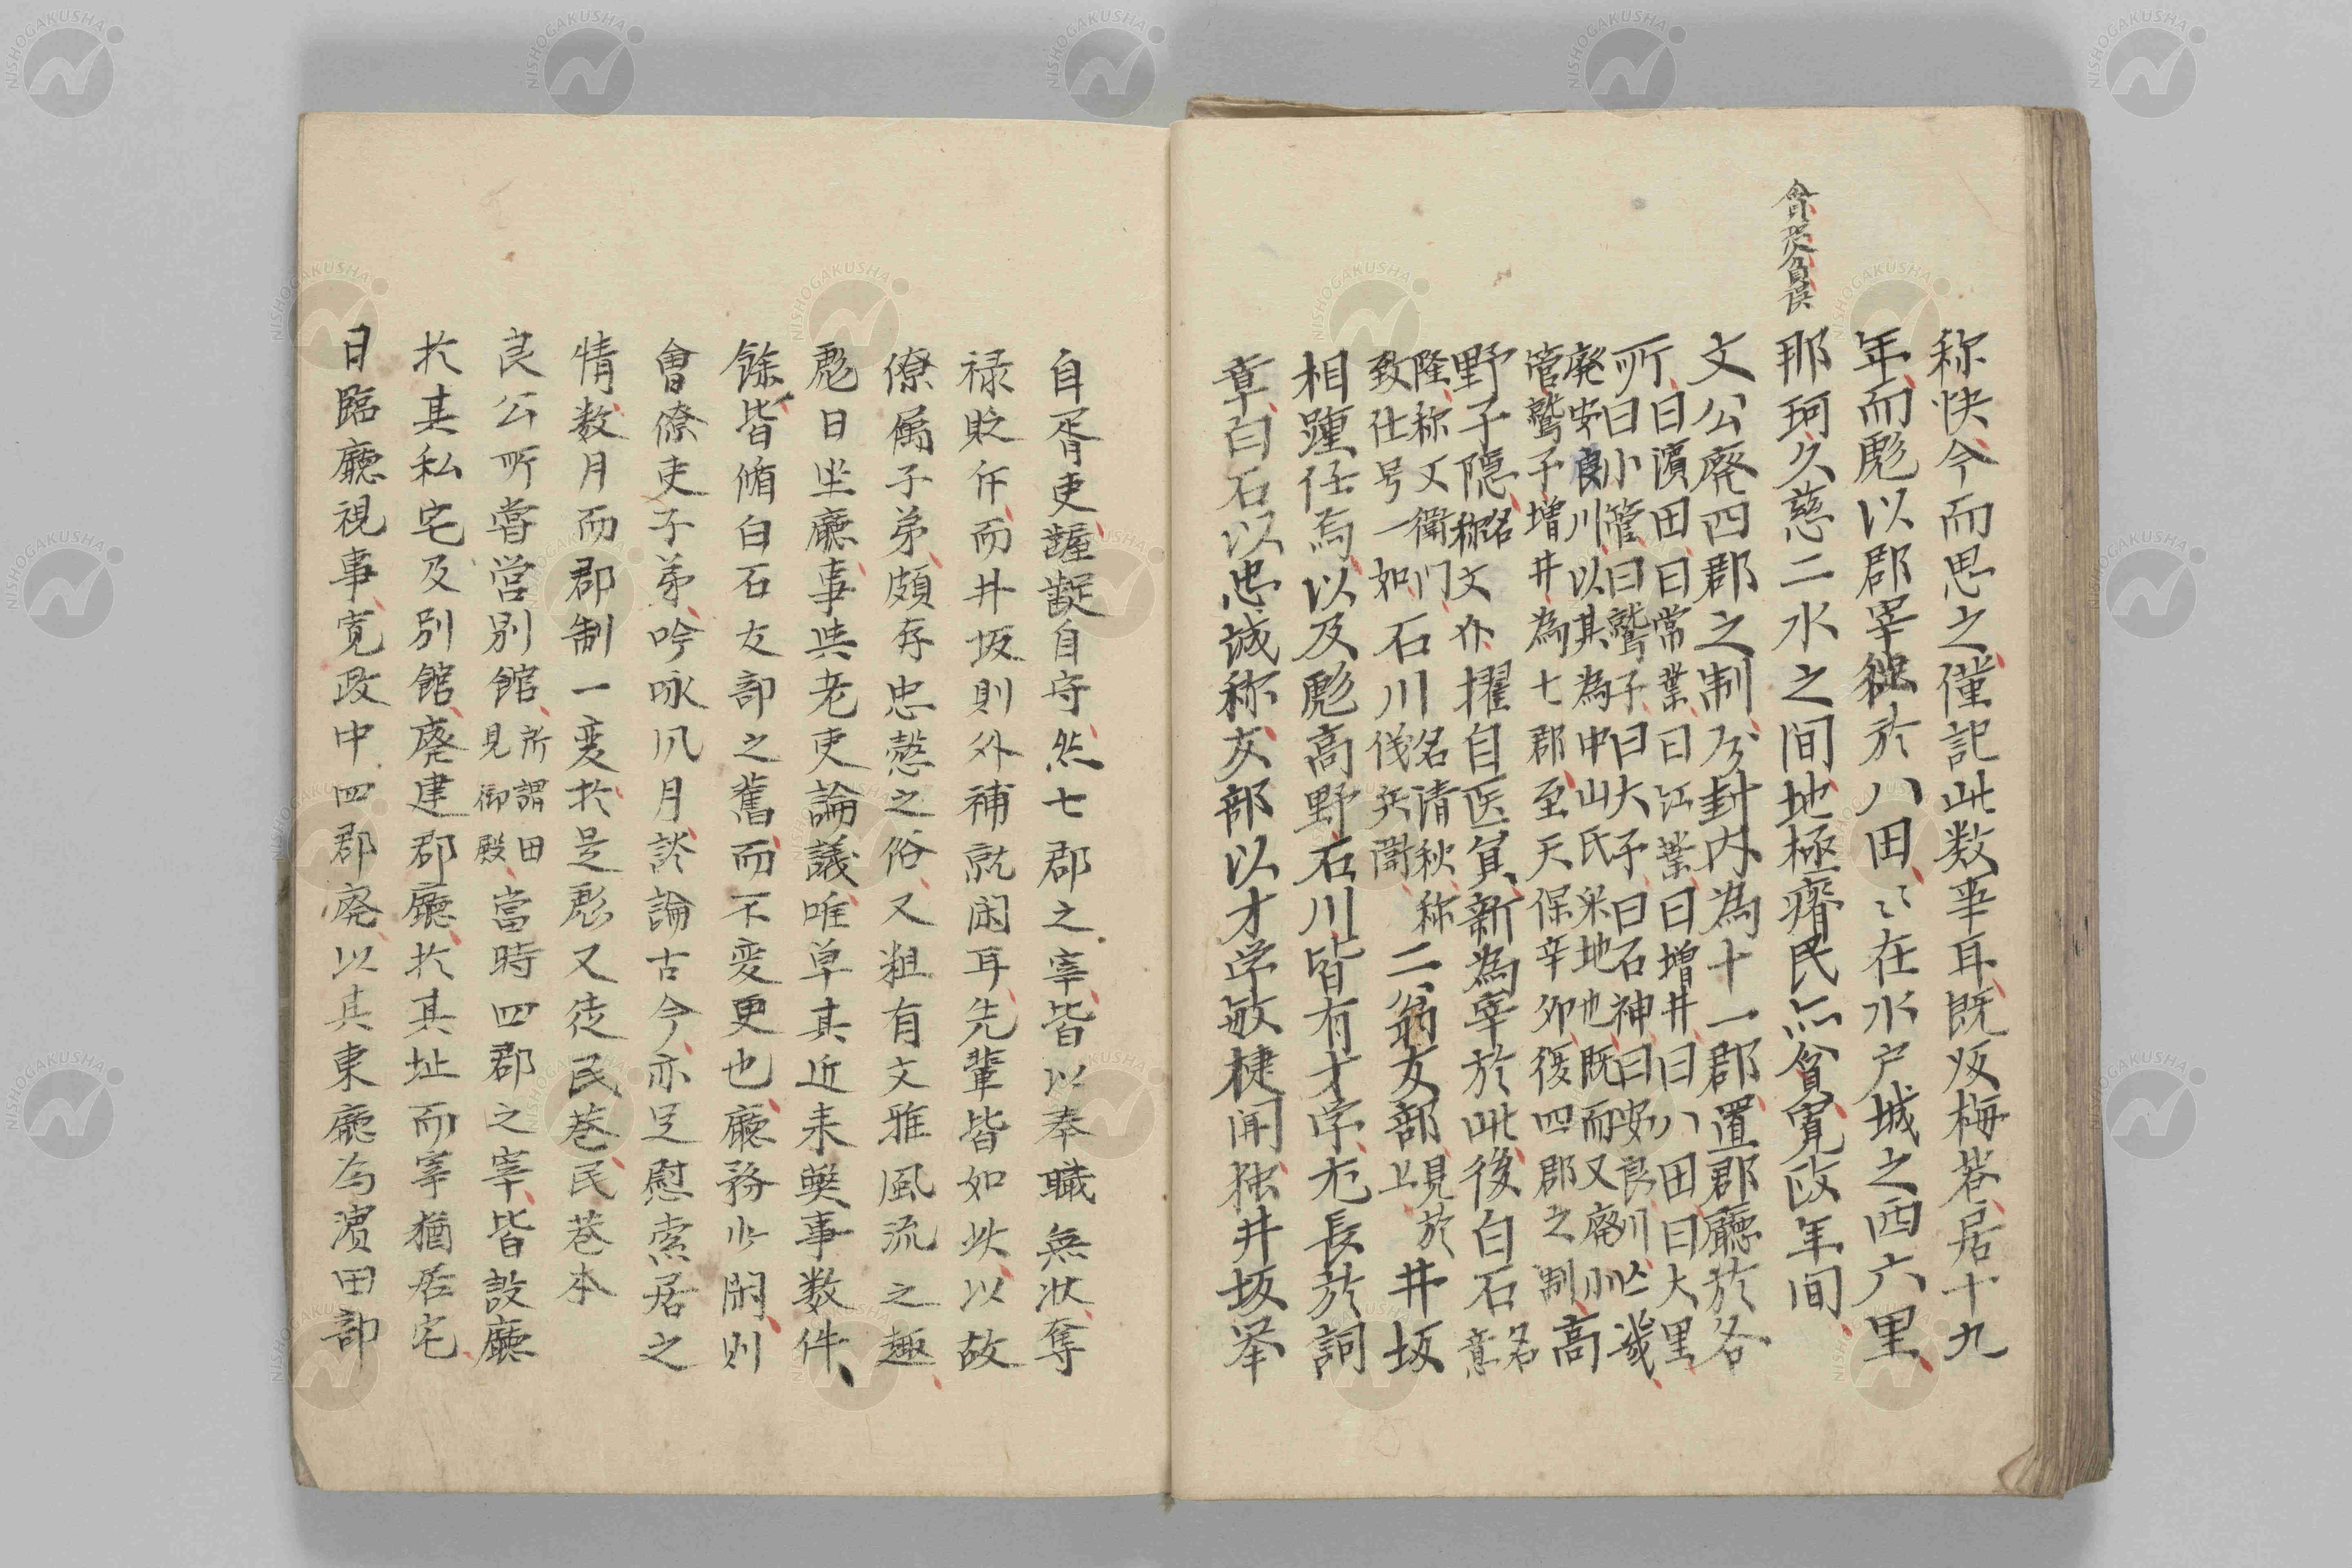 称快今而思之僅記此数事耳既返梅巷居十九
年而彪以郡宰徙於八田〻在水戸城之西六里
那珂久慈二水之间地極瘠民亦貧寛政年间
文公廃四郡之制分封内為十一郡置郡廳於各
所曰濱田曰常葉曰江葉曰増井曰八田曰大里
曰小管曰鷲子曰大子曰石神曰安良川亡幾
廃安良川以其為中山氏采地也既而又廃小
管鷲子増井為七郡至天保辛卯復四郡之制高
野子隠名称文介擢自医員新為宰於此後白石名意
隆称又衛門致仕号一如石川名清秋称傳兵衛二翁友部見於上井坂
相踵任焉以及彪高野石川皆有才学尤長於詞
章白石以忠誠称友部以才学敏捷聞独井坂举
自胥吏齷齪自守然七郡之宰皆以奉職無状奪
禄貶斥而井坂則外補就閑耳先輩皆如此以故
僚属子弟頗存忠慤之俗又粗有文雅風流之趣
彪日坐廳事與老吏論議唯草其近来獘事数件
餘皆脩白石友部之舊而不変更也廳務少閑則
會僚吏子弟吟咏风月談論古今亦足慰索居之
情数月而郡制一変於是彪又徒民巷民巷本
良公所嘗営別館所謂田見御殿當時四郡之宰皆設廳
於其私宅及別館廃建郡廳於其址而宰猶居宅
日臨廳視事寛政中四郡廃以其東廳為濱田部